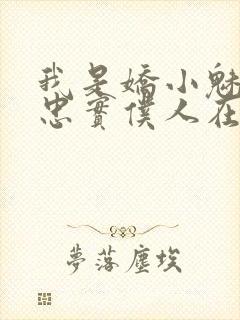 我是嬌小魅
忠實僕人在
夢落塵埃